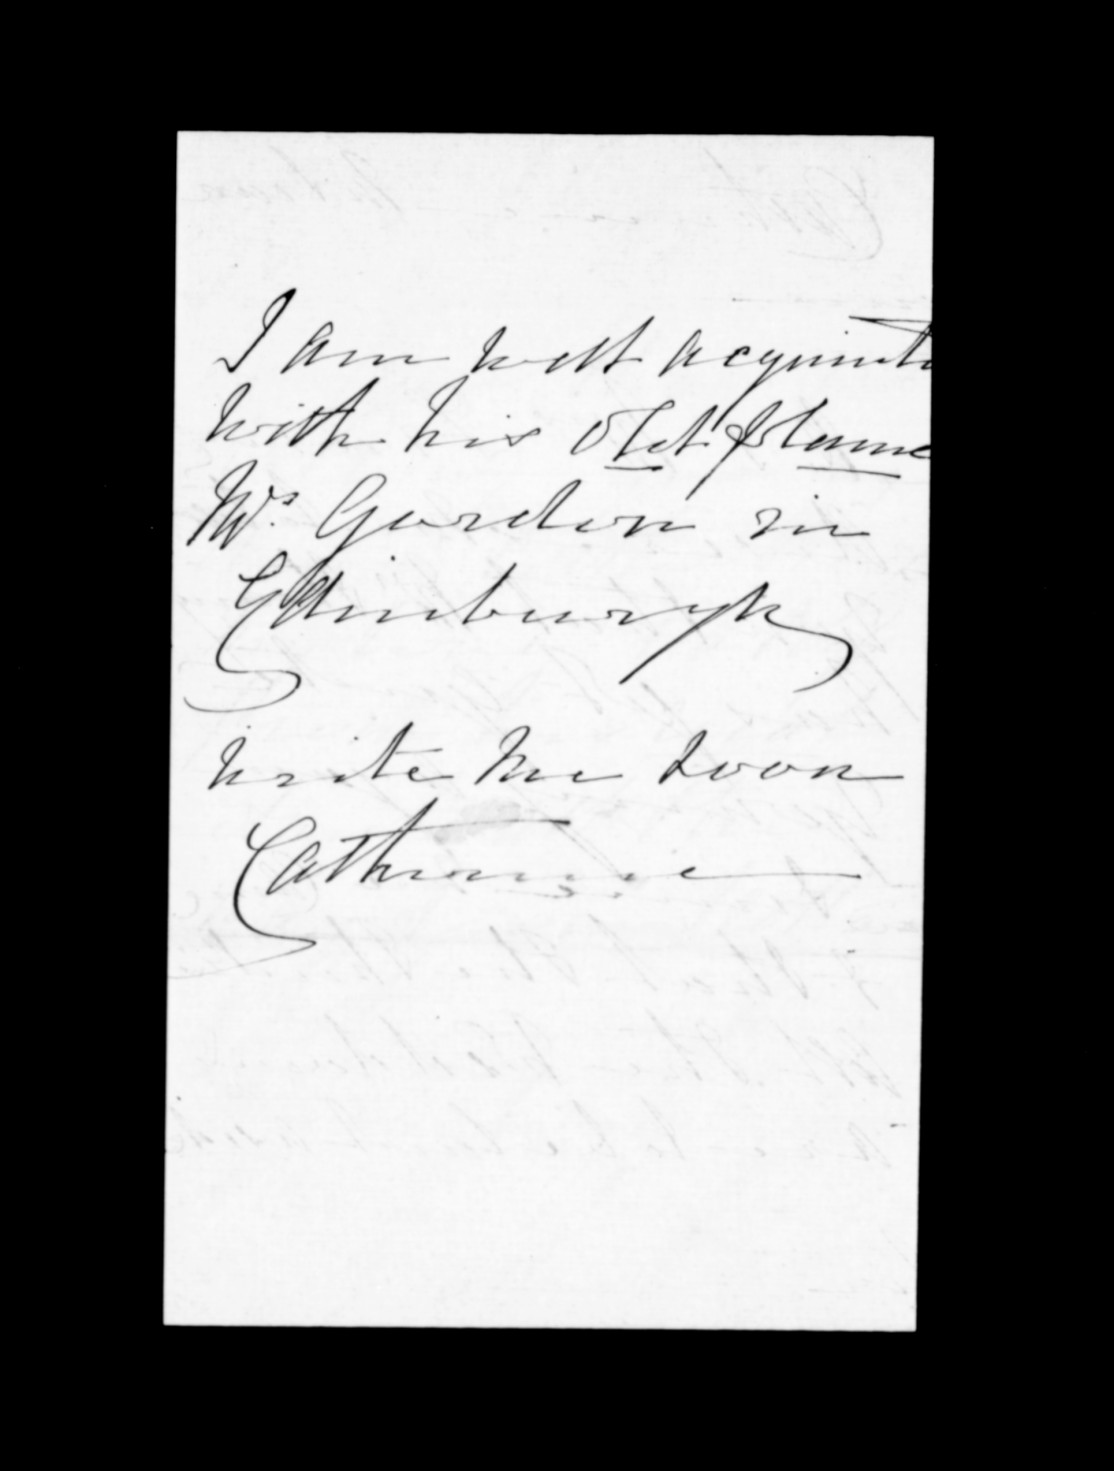 I am well acquinte
with his old flame
Mrs. Gordon in
Edinburgh
write me soon
Catherine